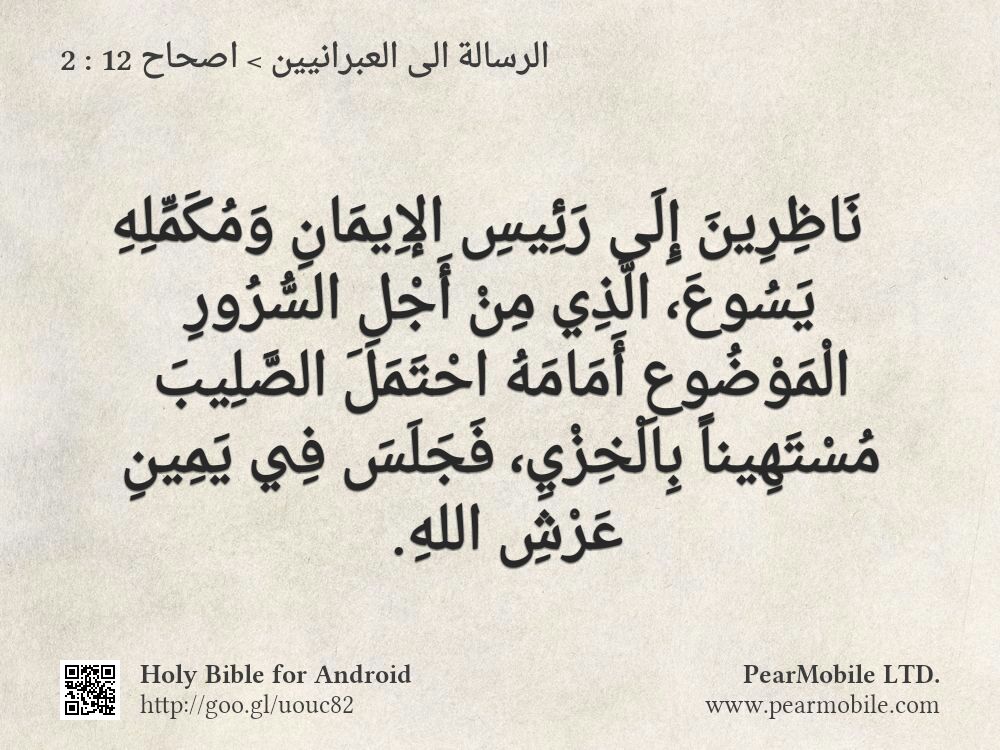 الرسالة الى العبرانيين > اصحاح 12 : 2
نَاظِرِينَ إِلَى رَئِيسِ الإِيمَانِ وَمُكَمِّلِهِ
يَسُوعَ، الَّذِي مِنْ أَجْلِ السُّرُورِ
الْمَوْضُوعِ أَمَامَهُ احْتَمَلَ الصَّلِيبَ
مُسْتَهِيناً بِالْخِزْيِ، فَجَلَسَ فِي يَمِينِ
عَرْشِ اللهِ.
Holy Bible for Android
http://goo.gl/uouc82
PearMobile LTD.
www.pearmobile.com